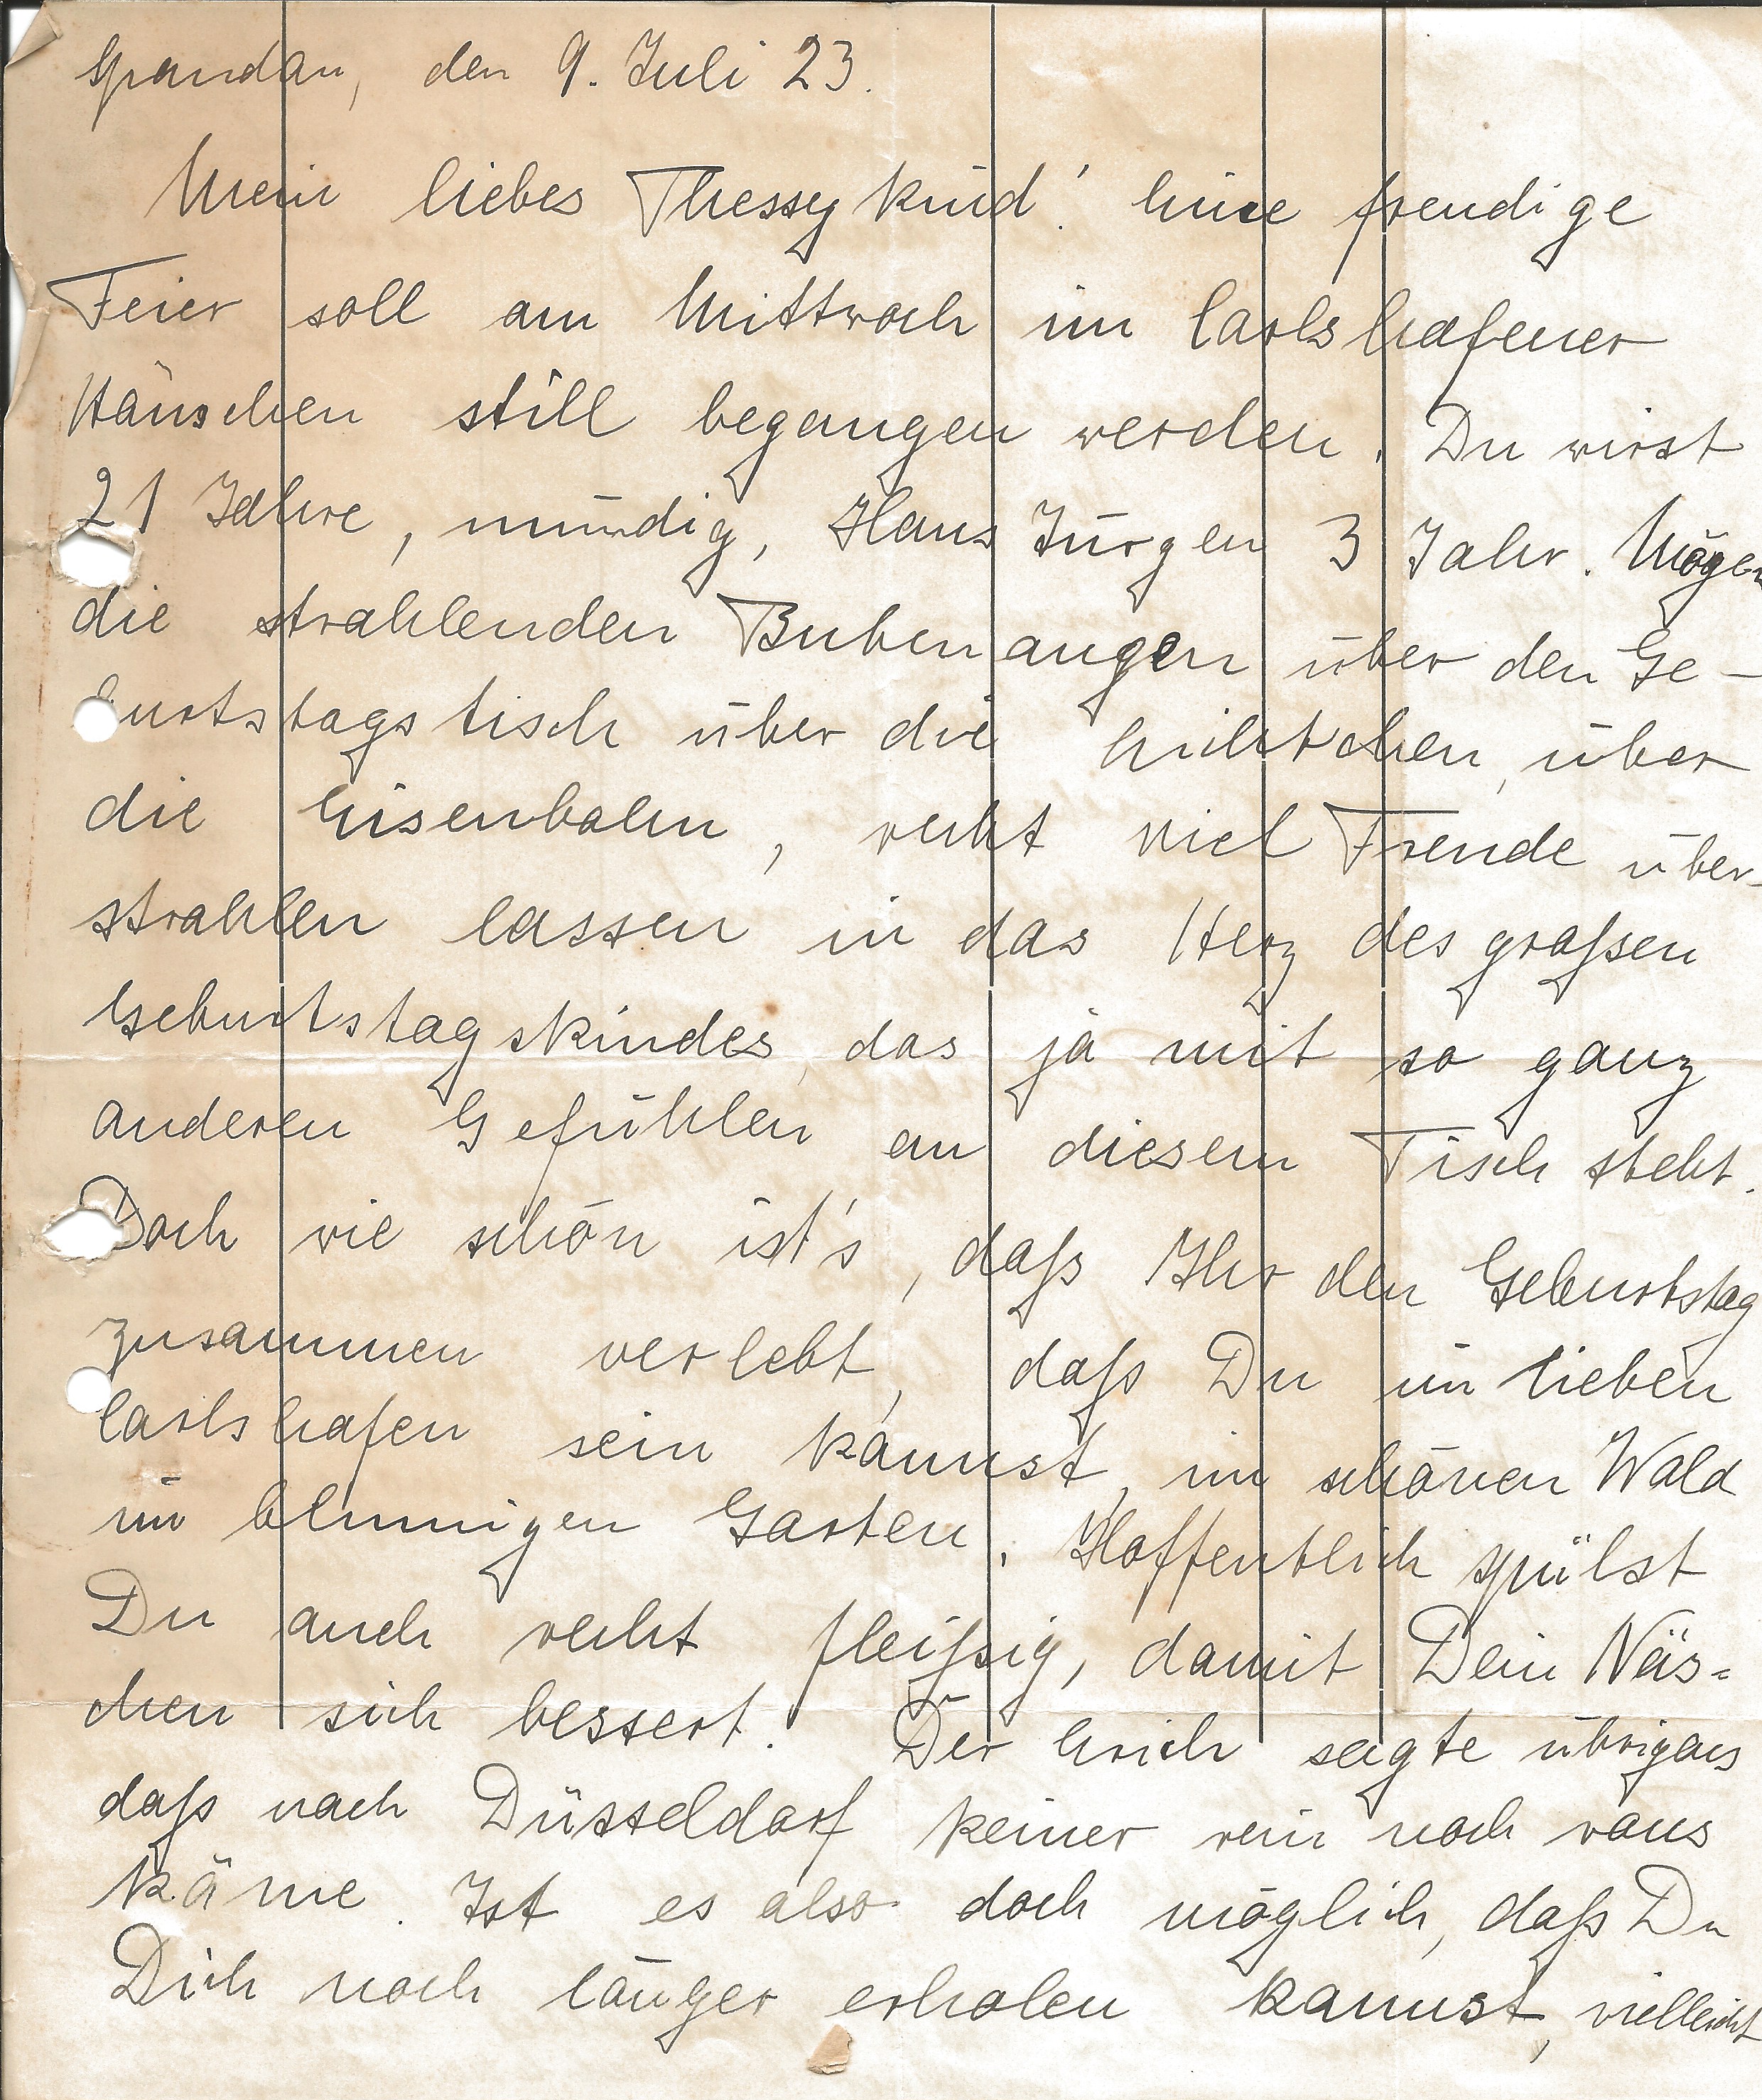 Spandau, den 9. Juli 23.
Mein liebes Thessykind! Eine freudige
Feier soll am Mittwoch im Carlshafener
Häuschen still begangen werden. Du wirst
21 Jahre, mündig, Hans Jürgen 3 Jahr. Mögen
die strahlenden Bubenaugen über den Ge-
burtstagstisch über die Lichtchen, über
die Eisenbahn, recht viel Freude über-
strahlen lassen in das Herz des großen
Geburtstagskindes, das ja mit so ganz
anderen Gefühlen an diesem Tisch steht.
Doch wie schön ist's, daß Ihr den Geburtstag
zusammen verlebt, daß Du im lieben
Carlshafen sein kannst, im schönen Wald
im blumigen Garten. Hoffentlich spülst
Du auch recht fleißig, damit Dein Näs=
chen sich bessert. Der Erich sagte übrigens
daß nach Düsseldorf keiner rein noch raus
käme. Ist es also doch möglich, daß Du
Dich noch länger erholen kannst, vielleicht